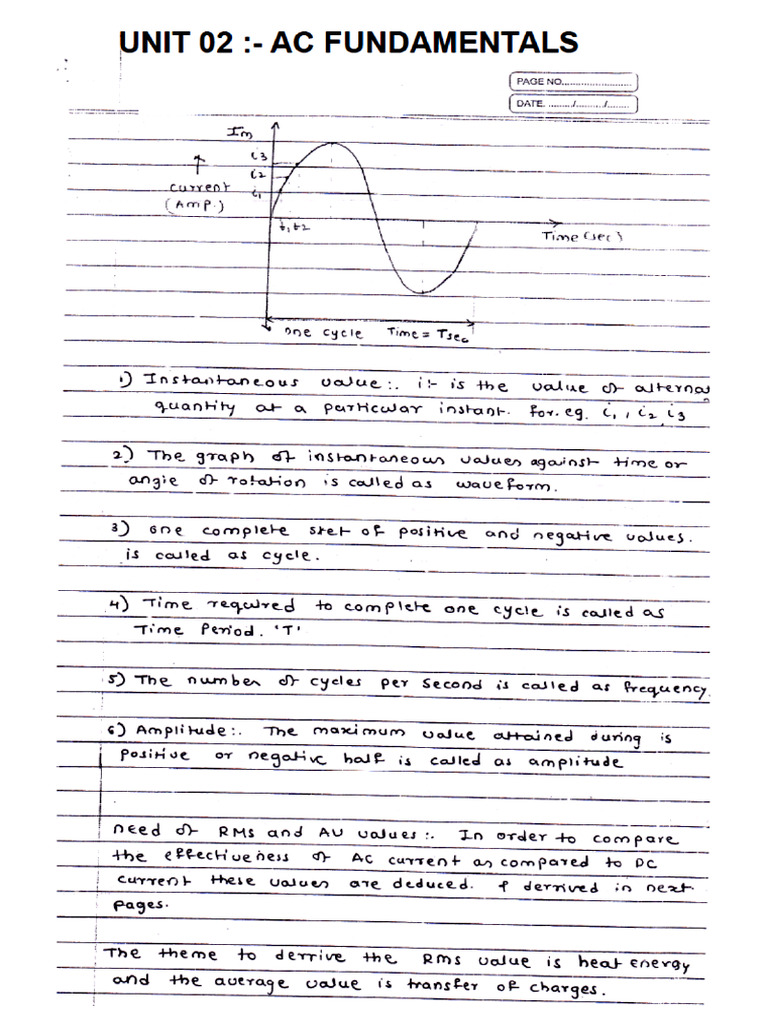 UNIT 02 :- AC FUNDAMENTALS
PAGE NO.........................
DATE. ........./........../........
Im
i3
i2
i1
Current
(Amp.)
t1 t2
Time (sec)
one cycle Time = Tsec
1) Instantaneous value:. it is the value of alternat
quantity at a particular instant. for. eg. i1, i2, i3
2) The graph of instantaneous values against time or
angle of rotation is called as waveform.
3) one complete stet of positive and negative values.
is called as cycle.
4) Time required to complete one cycle is called as
Time Period. 'T'
5) The number of cycles per second is called as frequency.
6) Amplitude:. The maximum value attained during is
positive or negative half is called as amplitude
need of RMS and AV values:. In order to compare
the effectiveness of AC current as compared to DC
current these values are deduced. & derrived in next
pages.
The theme to derrive the RMS value is heat energy
and the average value is transfer of charges.